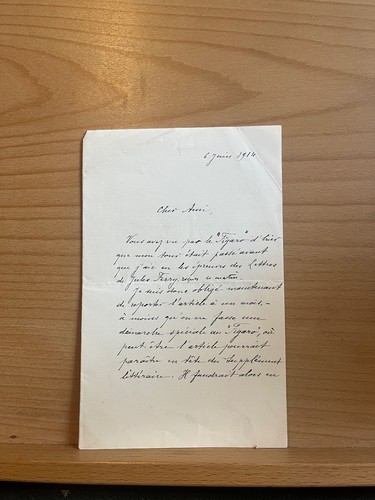 6 juin 1914
Cher Ami,
Vous avez vu par le "Figaro" d'hier
que mon tour était passé avant
que j'aie eu les épreuves des Lettres
de Jules Ferry, reçues ce matin.
Je suis donc obligé maintenant
de reporter l'article à un mois, –
à moins qu'on ne fasse une
démarche spéciale au Figaro, où
peut être l'article pourrait
paraître en tête du Supplément
littéraire. Il faudrait alors en